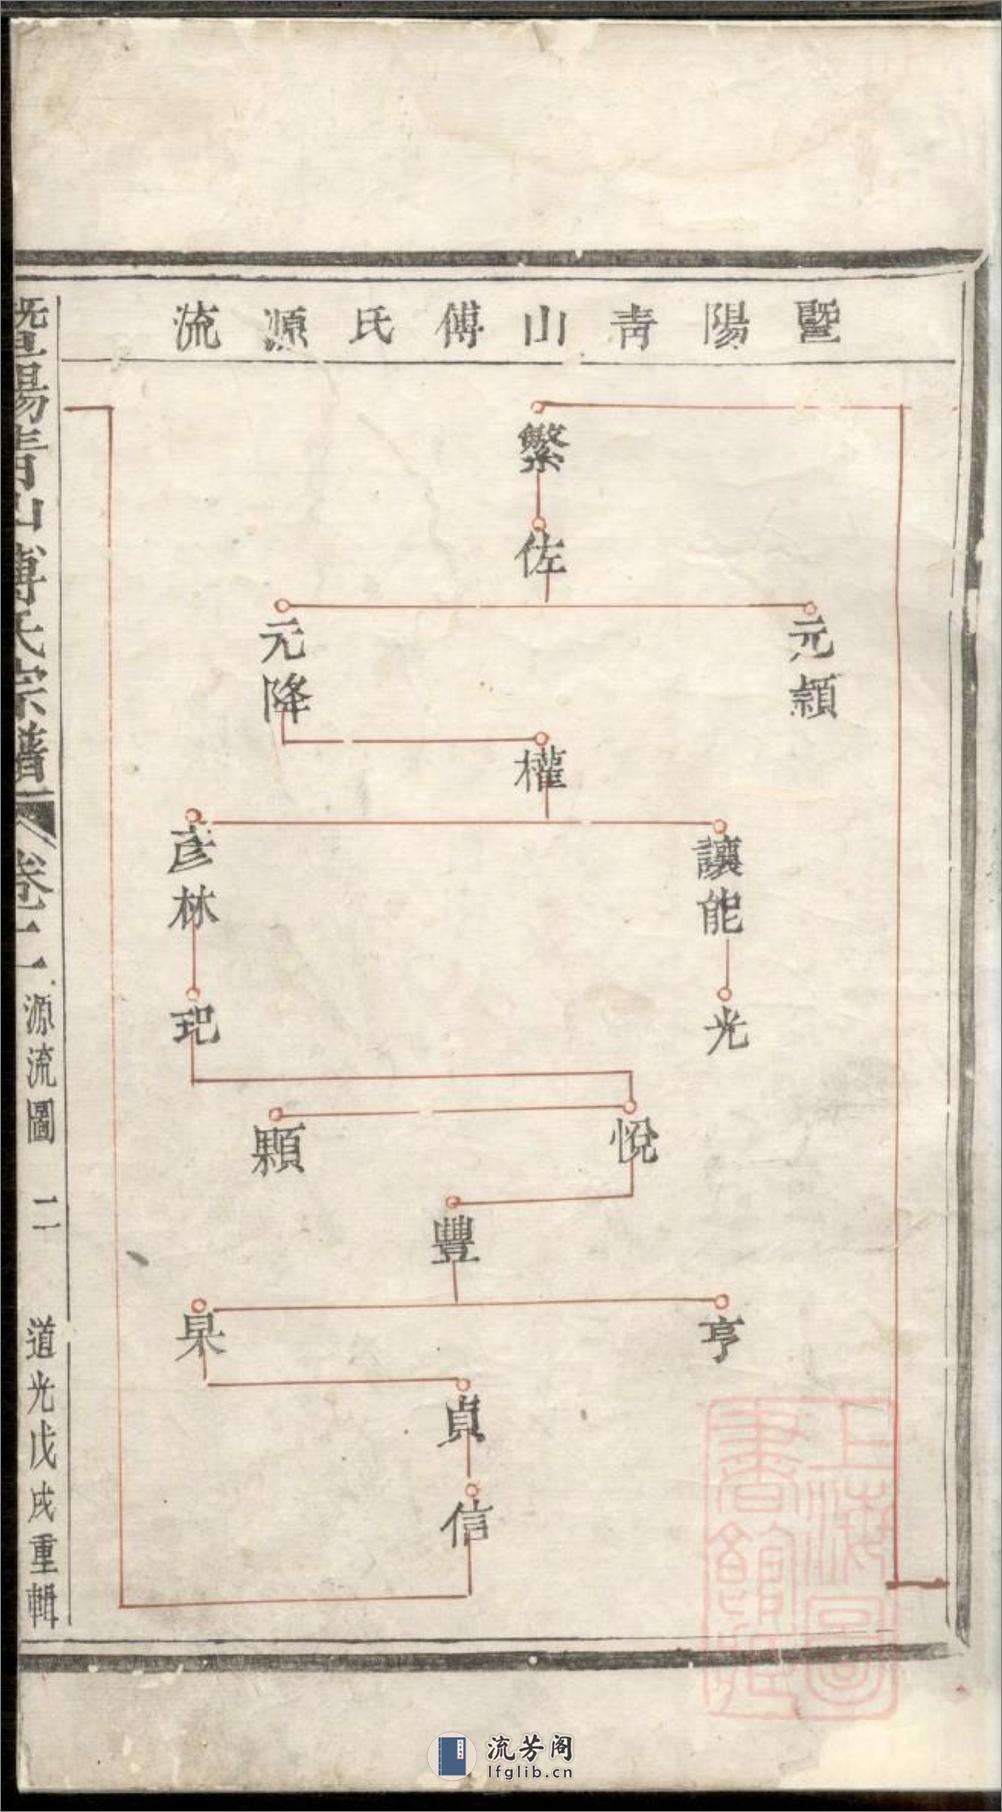 暨陽青山傅氏源流
繁
佐
元穎
元降
權
讓能
彥林
光
玘
悅
顆
豐
亨
杲
貞
信
暨陽青山傅氏宗譜
卷二
源流圖
二
道光戊戌重輯
上海圖書館藏
流芳阁
lfglib.cn